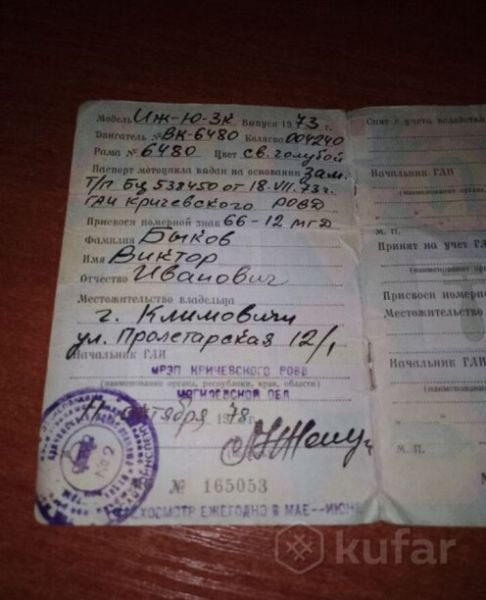 Модель Иж-Ю-3К Выпуск 1973 г.
Двигатель № ВК-6480 Коляска 004240
Рама № 6480 Цвет св.голубой
Паспорт мотоцикла выдан на основании зам.
Т/П БЦ 538450 от 18.VII.73г.
ГАИ Кричевского РОВД
Присвоен номерной знак 66-12 МГД
Фамилия Быков
Имя Виктор
Отчество Иванович
Местожительство владельца
г. Климовичи
ул. Пролетарская 12/1
Начальник ГАИ
МРЭП КРИЧЕВСКОГО РОВД
(наименование органа, республики, края, области)
МОГИЛЕВСКОЙ ОБЛ
октября 1978 г.
№ 165053
ТЕХОСМОТР ЕЖЕГОДНО В МАЕ-ИЮНЕ
№ 2
Снят с учета
Начальник ГАИ
(наименование органа
М. П.
Принят на учет ГА
(наименование
Присвоен номерно
Местожительство
Начальник ГАИ
(наименование
М. П.
kufar